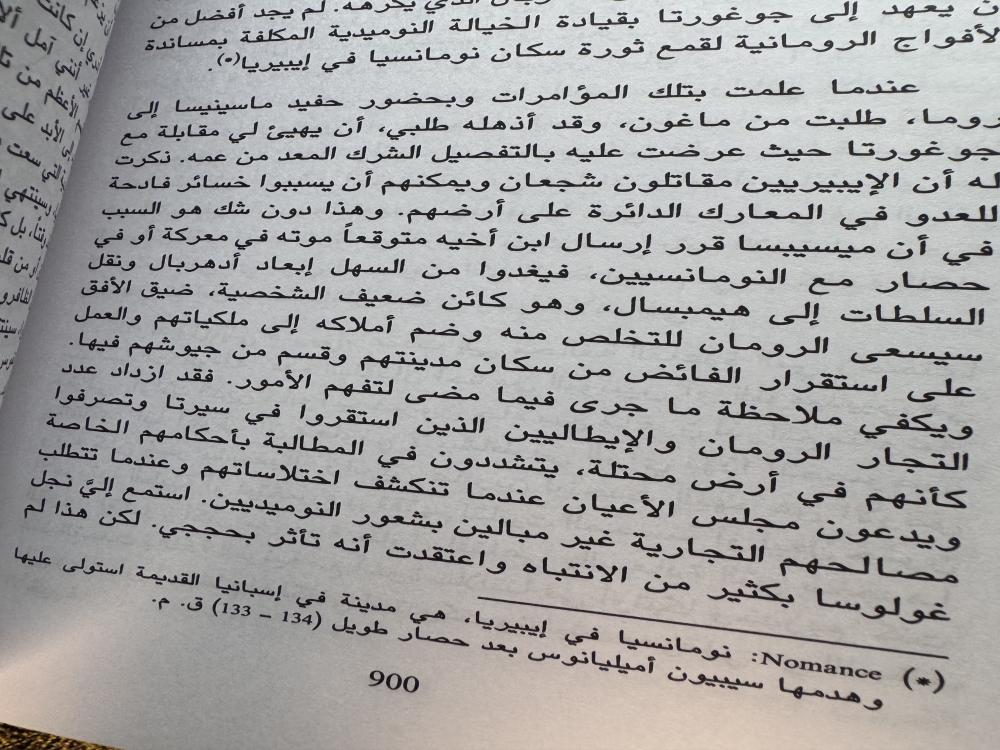 ن يعهد إلى جوغورتا بقيادة الخيالة النوميدية المكلفة بمساندة
لأفواج الرومانية لقمع ثورة سكان نومانسيا في إيبيريا(*).
عندما علمت بتلك المؤامرات وبحضور حفيد ماسينيسا إلى
روما، طلبت من ماغون، وقد أذهله طلبي، أن يهيئ لي مقابلة مع
جوغورتا حيث عرضت عليه بالتفصيل الشرك المعد من عمه. ذكرت
له أن الإيبيريين مقاتلون شجعان ويمكنهم أن يسببوا خسائر فادحة
للعدو في المعارك الدائرة على أرضهم. وهذا دون شك هو السبب
في أن ميسيبسا قرر إرسال ابن أخيه متوقعاً موته في معركة أو في
حصار مع النومانسيين، فيغدوا من السهل إبعاد أدهربال ونقل
السلطات إلى هيمبسال، وهو كائن ضعيف الشخصية، ضيق الأفق
سيسعى الرومان للتخلص منه وضم أملاكه إلى ملكياتهم والعمل
على استقرار الفائض من سكان مدينتهم وقسم من جيوشهم فيها.
ويكفي ملاحظة ما جرى فيما مضى لتفهم الأمور. فقد ازداد عدد
التجار الرومان والإيطاليين الذين استقروا في سيرتا وتصرفوا
كأنهم في أرض محتلة، يتشددون في المطالبة بأحكامهم الخاصة
ويدعون مجلس الأعيان عندما تنكشف اختلاساتهم وعندما تتطلب
مصالحهم التجارية غير مبالين بشعور النوميديين. استمع إليَّ نجل
غولوسا بكثير من الانتباه واعتقدت أنه تأثر بحججي. لكن هذا لم
(*) Nomance: نومانسيا في إيبيريا، هي مدينة في إسبانيا القديمة استولى عليها
وهدمها سيبيون أميليانوس بعد حصار طويل (134 – 133) ق. م.
900